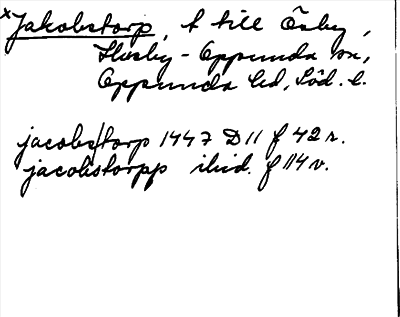 ×Jakobstorp, t till Åsby,
Husby-Oppunda sn,
Oppunda hd, Söd. l.
jacobs/torp 1447 D 11 f 42 r.
jacobstorpp ibid. f 114 v.